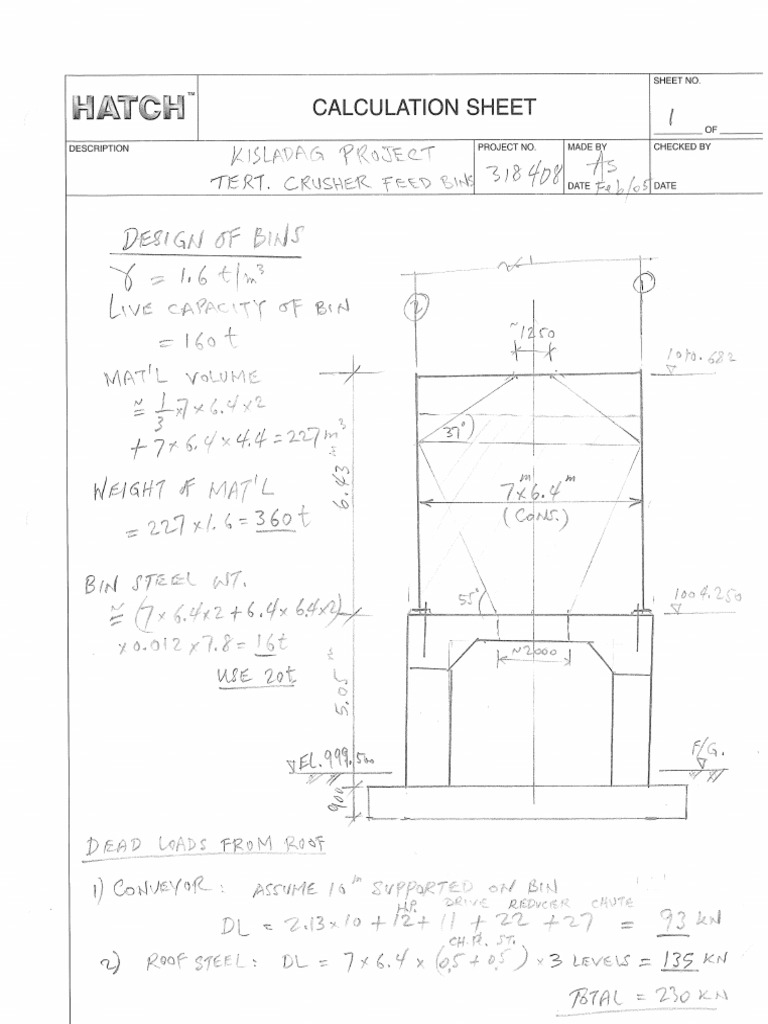 HATCH™
CALCULATION SHEET
SHEET NO.
1
OF
DESCRIPTION
KISLADAG PROJECT
TERT. CRUSHER FEED BINS
PROJECT NO.
318408
MADE BY
AS
DATE Feb/05
CHECKED BY
DATE
DESIGN OF BINS
γ = 1.6 t/m³
LIVE CAPACITY OF BIN
= 160 t
MAT'L VOLUME
≅ 1/3 x 7 x 6.4 x 2
+ 7 x 6.4 x 4.4 = 227 m³
WEIGHT of MAT'L
= 227 x 1.6 = 360 t
BIN STEEL WT.
≅ (7 x 6.4 x 2 + 6.4 x 6.4 x 2)
x 0.012 x 7.8 = 16t
USE 20t
2
1
~1250
1010.682
37°
6.43 m
7 m x 6.4 m
(CONS.)
55°
1004.250
~2000
5.05 m
EL. 999.500
F/G.
900
DEAD LOADS FROM ROOF
1) CONVEYOR: ASSUME 10 m SUPPORTED ON BIN
DRIVE REDUCER CHUTE
DL = 2.13 x 10 + 12 + 11 + 22 + 27 = 93 KN
2) ROOF STEEL: DL = 7 x 6.4 x (0.5 + 0.5) x 3 LEVELS = 135 KN
CH.PL. ST.
TOTAL = 230 KN